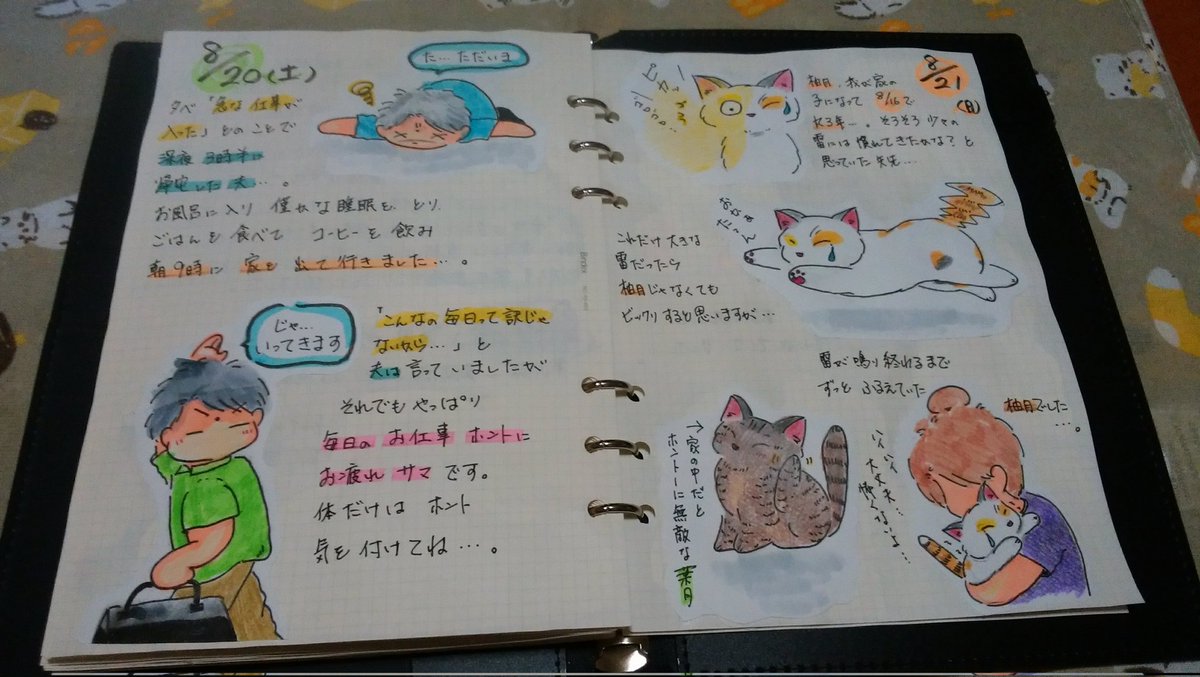 8/20(土)
た…ただいま
夕べ「急な仕事が
入った」とのことで
深夜3時半に
帰宅した夫…。
お風呂に入り 僅かな睡眠を とり
ごはんを 食べて コーヒーを 飲み
朝9時に 家を 出て行きました…。
じゃ…
いってきます
「こんなの毎日って訳じゃ
ないから…」と
夫は言っていましたが
それでもやっぱり
毎日の お仕事 ホントに
お疲れ サマ です。
体だけは ホント
気を付けてね…。
8/21
(日)
ピカッー
ゴロゴロ…
柚月、我が家の
子になって 8/16で
丸3年…。そろそろ少々の
雷には慣れてきたかな?と
思っていた矢先…
これだけ大きな
雷だったら
柚月じゃなくても
ビックリすると思いますが…
雷が鳴り終わるまで
ずっと ふるえていた
柚月でした
…。
大丈夫…
怖くないよ…
→家の中だと
ホントーに無敵な
葉月